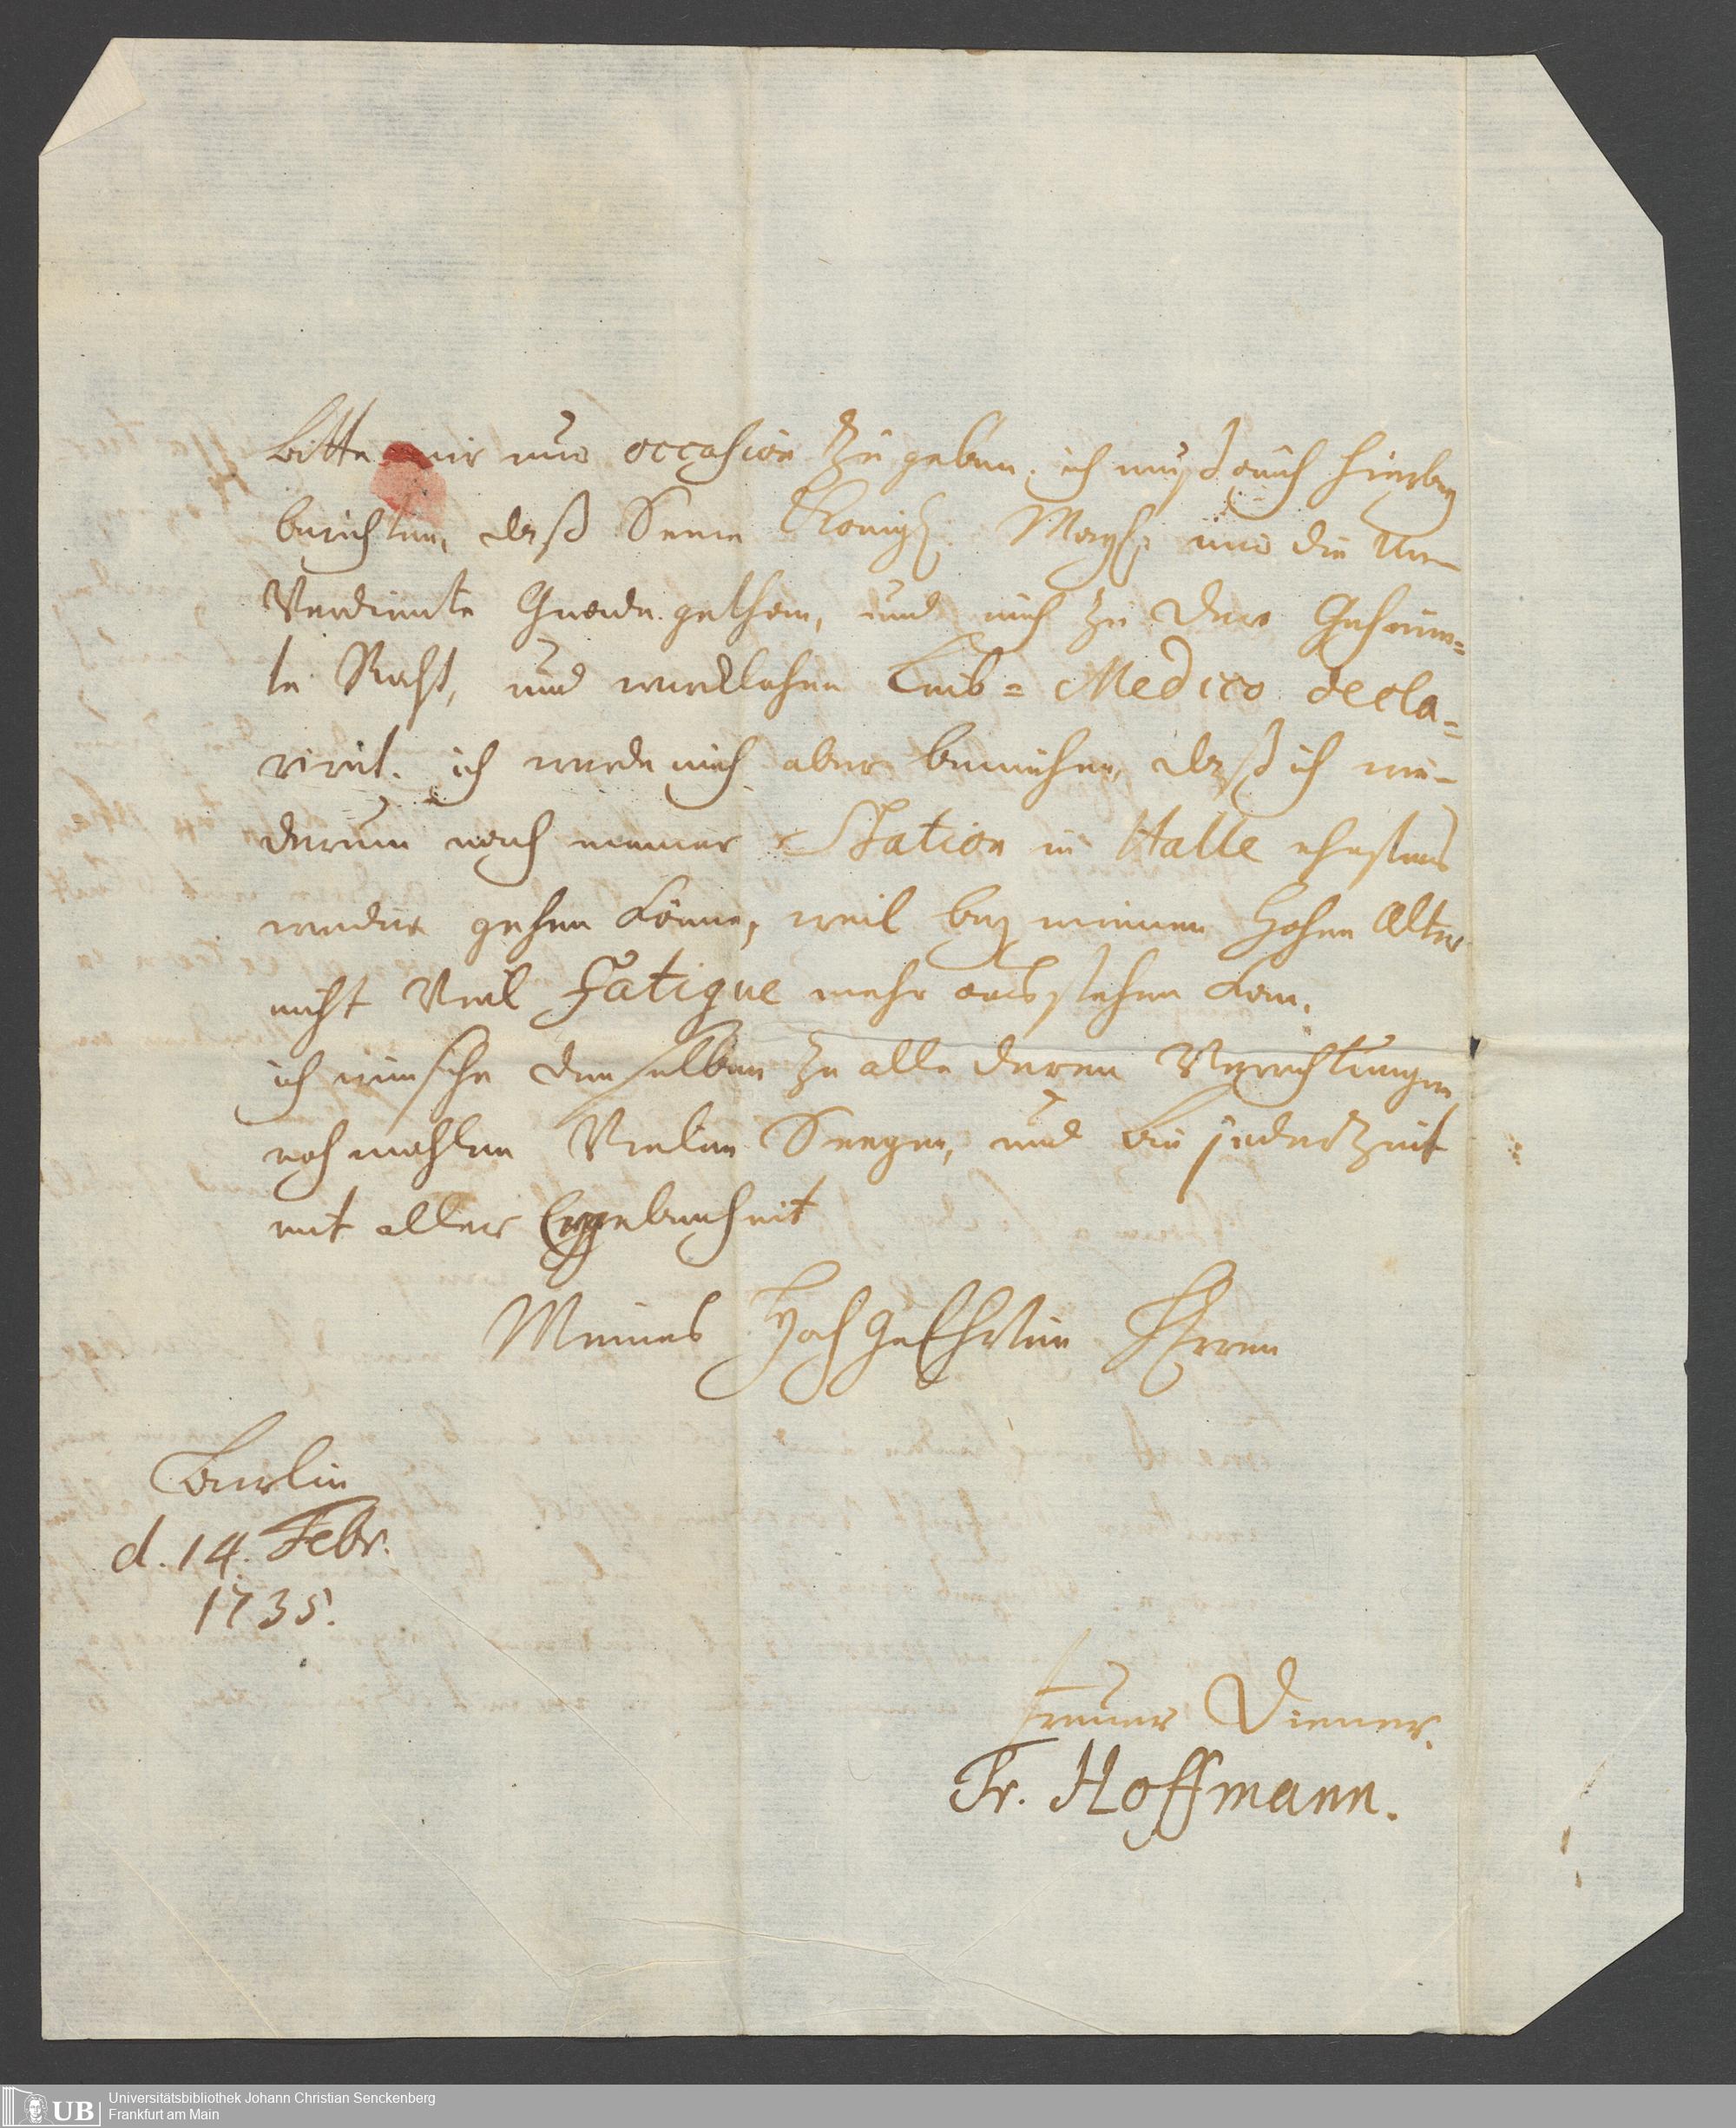 bitte mir nur occasion zu geben. ich muß auch hierbey
berichten, daß Seine König. Mayst. mir die Un-
Verdiente Gnade gethan, und mich zu Dero Geheim=
te Raht, und wircklichen Leib=Medico decla=
rirt. ich werde mich aber bemühen, daß ich wie-
derum nach meiner Station in Halle ehestens
wieder gehen könne, weil bey meinem hohen Alter
nicht Viel Fatique mehr ausstehen kan.
ich wünsche denselben zu alle deren Verrichtungen
nochmahlen Vielen Seegen, und bin jederzeit
mit aller Ergebenheit
Meines HochgeEhrten Herren
Berlin
d. 14. Febr.
1735.
treuer Diener.
Fr. Hoffmann.
UB Universitätsbibliothek Johann Christian Senckenberg
Frankfurt am Main